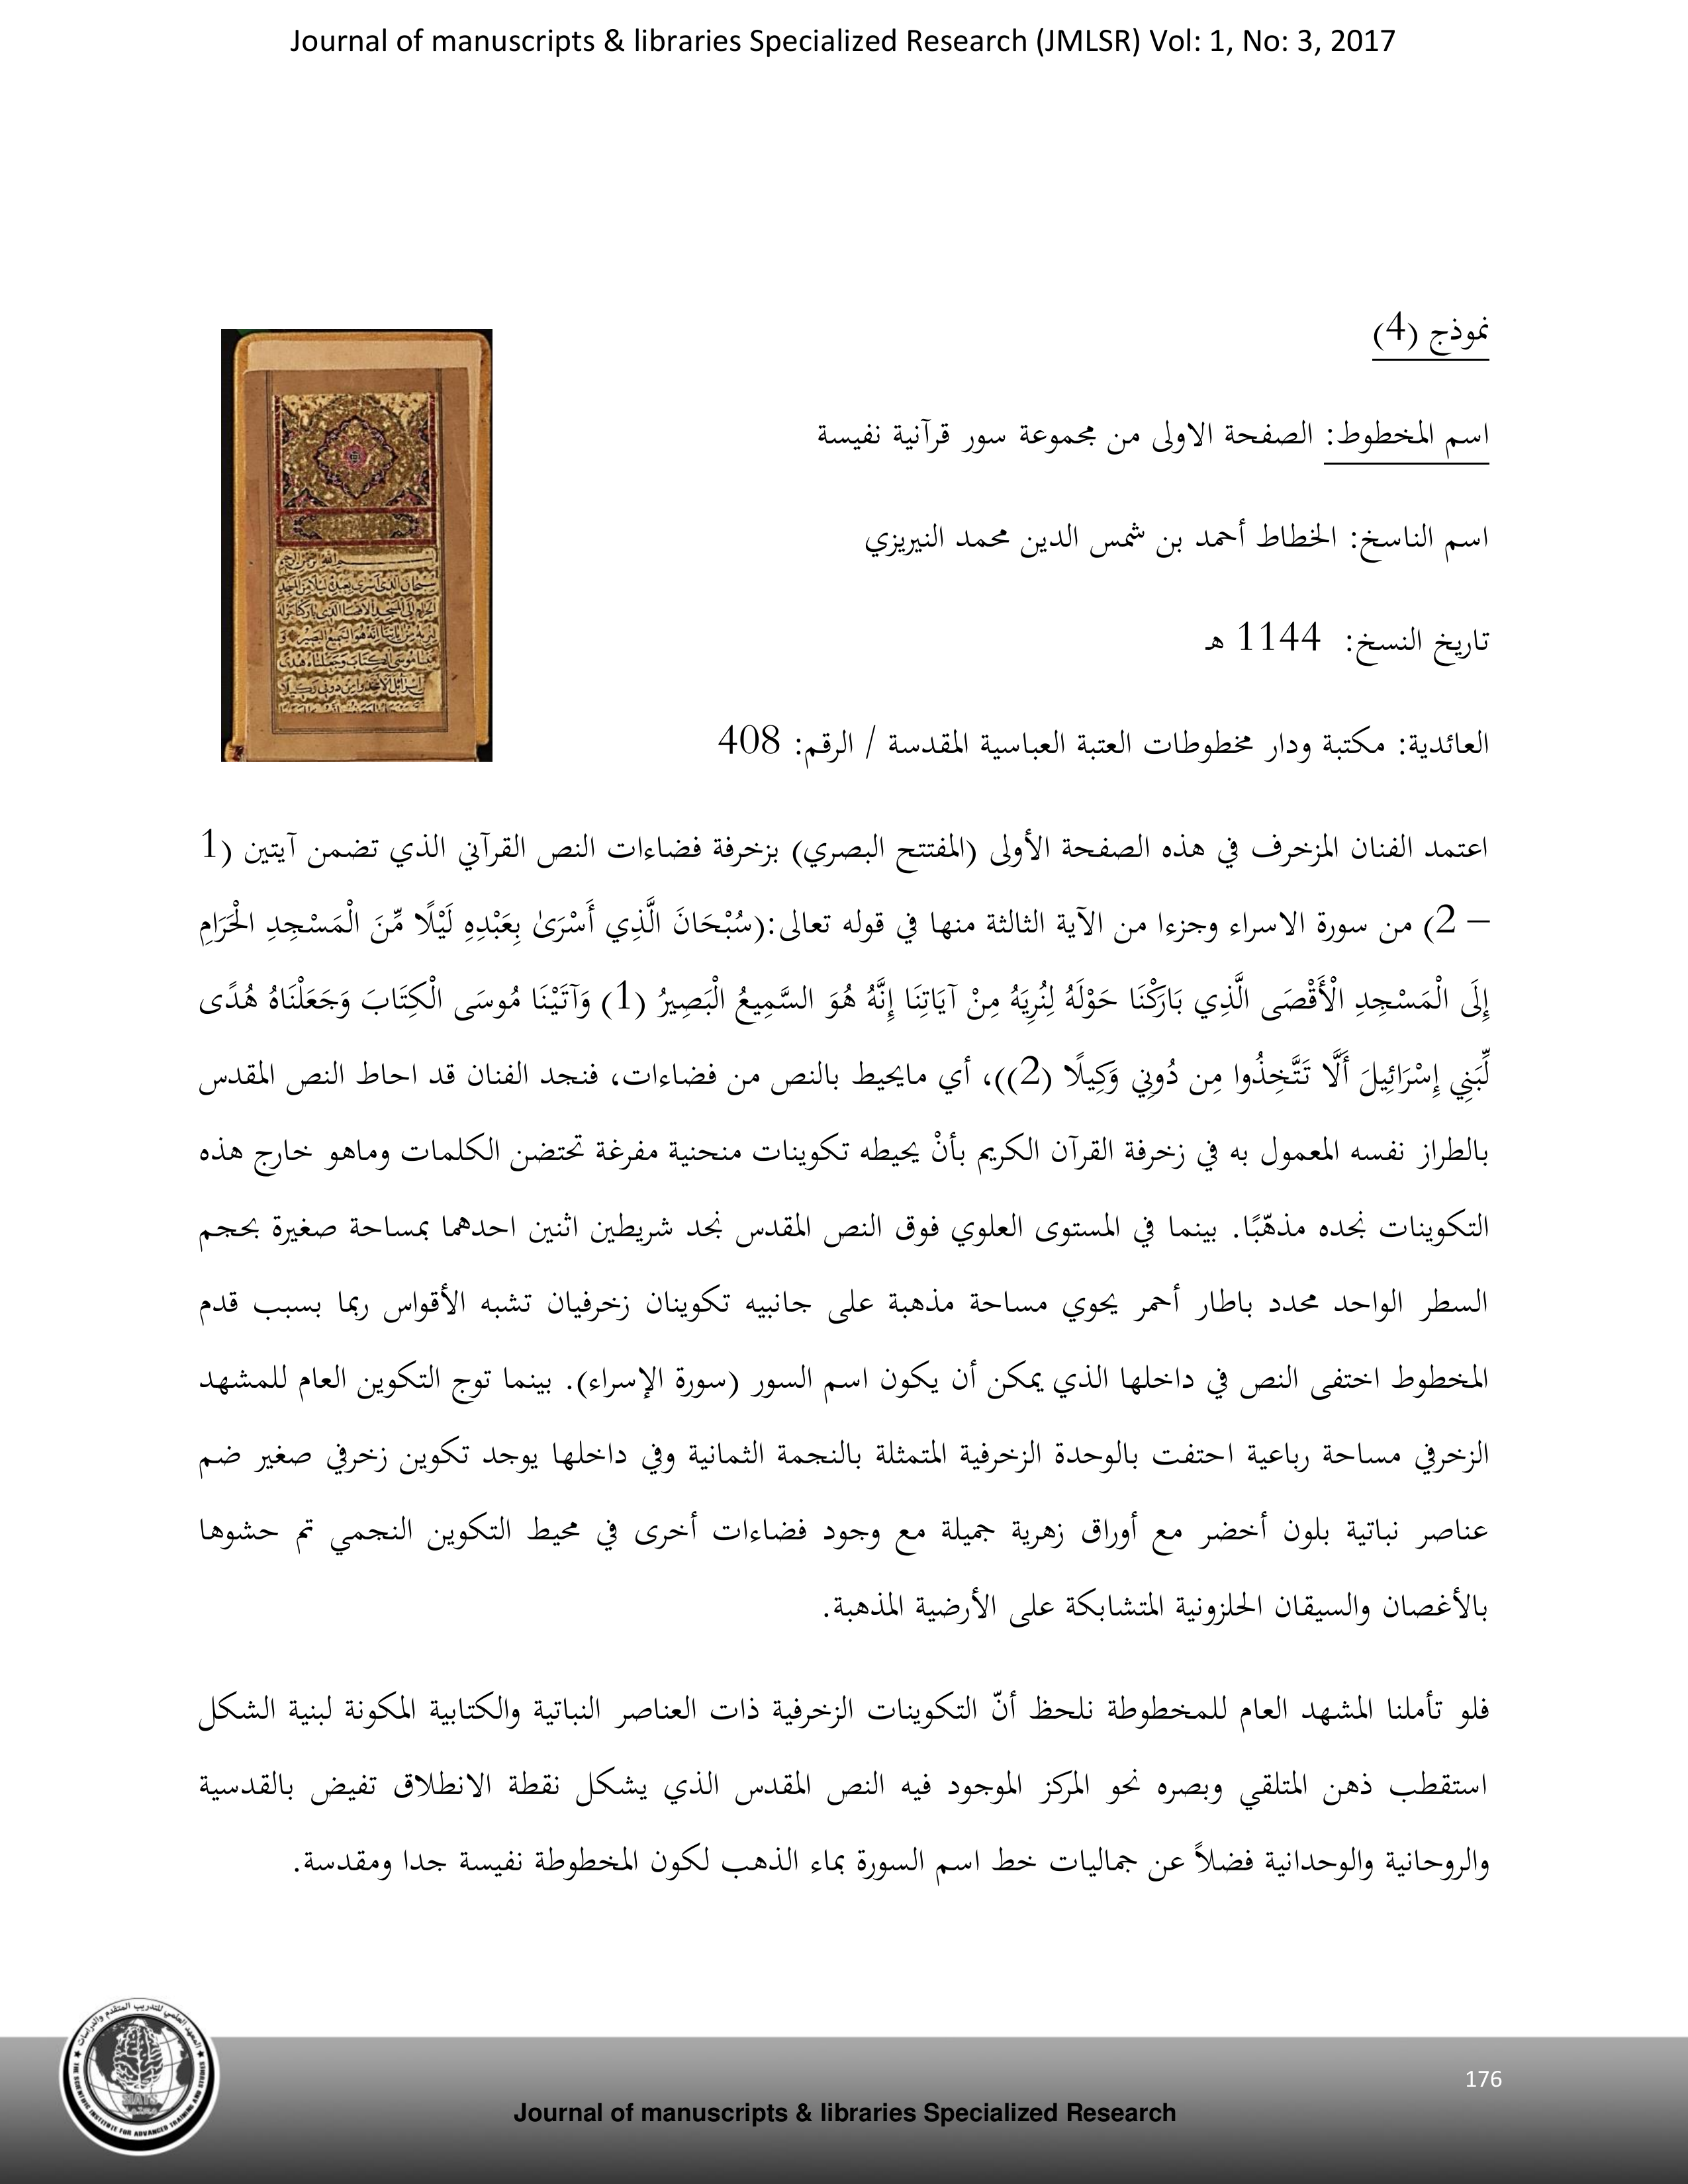 Journal of manuscripts & libraries Specialized Research (JMLSR) Vol: 1, No: 3, 2017
نموذج (4)
اسم المخطوط: الصفحة الاولى من مجموعة سور قرآنية نفيسة
اسم الناسخ: الخطاط أحمد بن شمس الدين محمد النيريزي
تاريخ النسخ: 1144 هـ
العائدية: مكتبة ودار مخطوطات العتبة العباسية المقدسة / الرقم: 408
اعتمد الفنان المزخرف في هذه الصفحة الأولى (المفتتح البصري) بزخرفة فضاءات النص القرآني الذي تضمن آيتين (1
– 2) من سورة الاسراء وجزءا من الآية الثالثة منها في قوله تعالى:(سُبْحَانَ الَّذِي أَسْرَىٰ بِعَبْدِهِ لَيْلًا مِّنَ الْمَسْجِدِ الْحَرَامِ
إِلَى الْمَسْجِدِ الْأَقْصَى الَّذِي بَارَكْنَا حَوْلَهُ لِنُرِيَهُ مِنْ آيَاتِنَا إِنَّهُ هُوَ السَّمِيعُ الْبَصِيرُ (1) وَآتَيْنَا مُوسَى الْكِتَابَ وَجَعَلْنَاهُ هُدًى
لِّبَنِي إِسْرَائِيلَ أَلَّا تَتَّخِذُوا مِن دُونِي وَكِيلًا (2))، أي مايحيط بالنص من فضاءات، فنجد الفنان قد احاط النص المقدس
بالطراز نفسه المعمول به في زخرفة القرآن الكريم بأنْ يحيطه تكوينات منحنية مفرغة تحتضن الكلمات وماهو خارج هذه
التكوينات نجده مذهّبًا. بينما في المستوى العلوي فوق النص المقدس نجد شريطين اثنين احدهما بمساحة صغيرة بحجم
السطر الواحد محدد باطار أحمر يحوي مساحة مذهبة على جانبيه تكوينان زخرفيان تشبه الأقواس ربما بسبب قدم
المخطوط اختفى النص في داخلها الذي يمكن أن يكون اسم السور (سورة الإسراء). بينما توج التكوين العام للمشهد
الزخرفي مساحة رباعية احتفت بالوحدة الزخرفية المتمثلة بالنجمة الثمانية وفي داخلها يوجد تكوين زخرفي صغير ضم
عناصر نباتية بلون أخضر مع أوراق زهرية جميلة مع وجود فضاءات أخرى في محيط التكوين النجمي تم حشوها
بالأغصان والسيقان الحلزونية المتشابكة على الأرضية المذهبة.
فلو تأملنا المشهد العام للمخطوطة نلحظ أنّ التكوينات الزخرفية ذات العناصر النباتية والكتابية المكونة لبنية الشكل
استقطب ذهن المتلقي وبصره نحو المركز الموجود فيه النص المقدس الذي يشكل نقطة الانطلاق تفيض بالقدسية
والروحانية والوحدانية فضلاً عن جماليات خط اسم السورة بماء الذهب لكون المخطوطة نفيسة جدا ومقدسة.
176
Journal of manuscripts & libraries Specialized Research